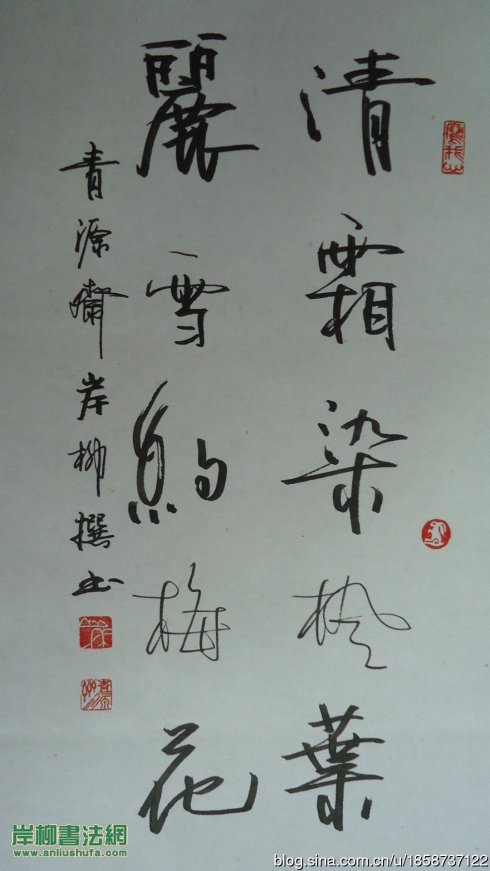 清霜染楓葉
麗雪點梅花
青源齋岸柳撰书
岸柳書法網
www.anliushufa.com
blog.sina.com.cn/u/1858737122